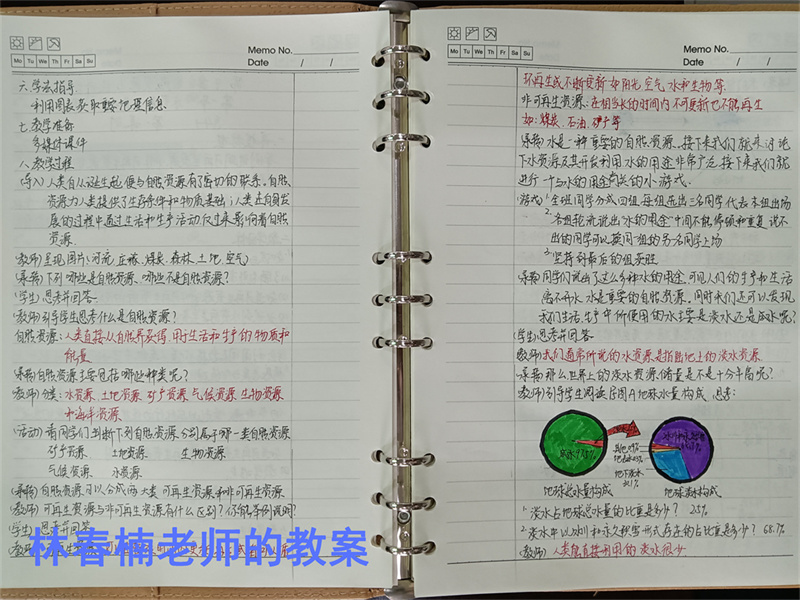 Memo No.
Mo Tu We Th Fr Sa Su
Date / /
六、学法指导
利用图表获取重要地理信息
七、教学准备
多媒体课件
八、教学过程
(导入)人类自从诞生起,便与自然资源有了密切的联系。自然
资源为人类提供了生存条件和物质基础;人类在自身发
展的过程中通过生活和生产活动 影响着自然
资源.
(教师)呈现图片:河流、庄稼、煤炭、森林、土地、空气
(承转)下列哪些是自然资源、哪些不是自然资源?
(学生)思考并回答.
(教师)引导学生思考什么是自然资源?
自然资源:人类直接从自然界获得,用于生活和生产的物质和
能量
(承转)自然资源主要包括哪些种类呢?
(教师)分类:水资源 土地资源 矿产资源 气候资源 生物资源
海洋资源
(活动)请同学们判断下列自然资源分别属于哪一类自然资源
矿产资源 土地资源 生物资源
气候资源 水资源
(承转)自然资源可以分成两大类:可再生资源和非可再生资源
(教师)可再生资源与非可再生资源有什么区别?你能举例说明?
(学生)思考并回答
(教师)
林春楠老师的教案
Memo No.
Mo Tu We Th Fr Sa Su
Date / /
环再生或不断更新 如阳光、空气、水和生物等.
非可再生资源:在相当长的时间内不可更新也不能再生
如:煤炭、石油、矿产等
(承转)水是一种重要的自然资源、接下来我们就来讨论
下水资源及其开发利用 水的用途非常广泛,接下来我们就
进行一个与水的用途有关的小游戏.
(游戏)1.全班同学分成四组,每组选出三名同学代表本组出场
2.各组轮流说出"水的用途"中间不能停顿和重复,说不
出的同学可以换同一组的另一名同学上场
3.坚持到最后的组获胜
(承转)同学们说出了这么多种水的用途,可见人们的生产和生活
离不开水,水是重要的自然资源,同时我们还可以发现
我们生活、生产中所使用的水主要是淡水还是咸水呢?
(学生)思考并回答.
(教师)我们通常所说的水资源是指陆地上的淡水资源
(承转)那么世界上的淡水资源储量是不是十分丰富呢?
(教师)引导学生阅读 地球水量构成 思考:
地下淡水
地球总水量构成
地球淡水构成
1.淡水占地球总水量的比重是多少? 2.5%
2.淡水中以冰川和永久积雪形式存在的占比重是多少? 68.7%
(教师)人类能直接利用的淡水很少.